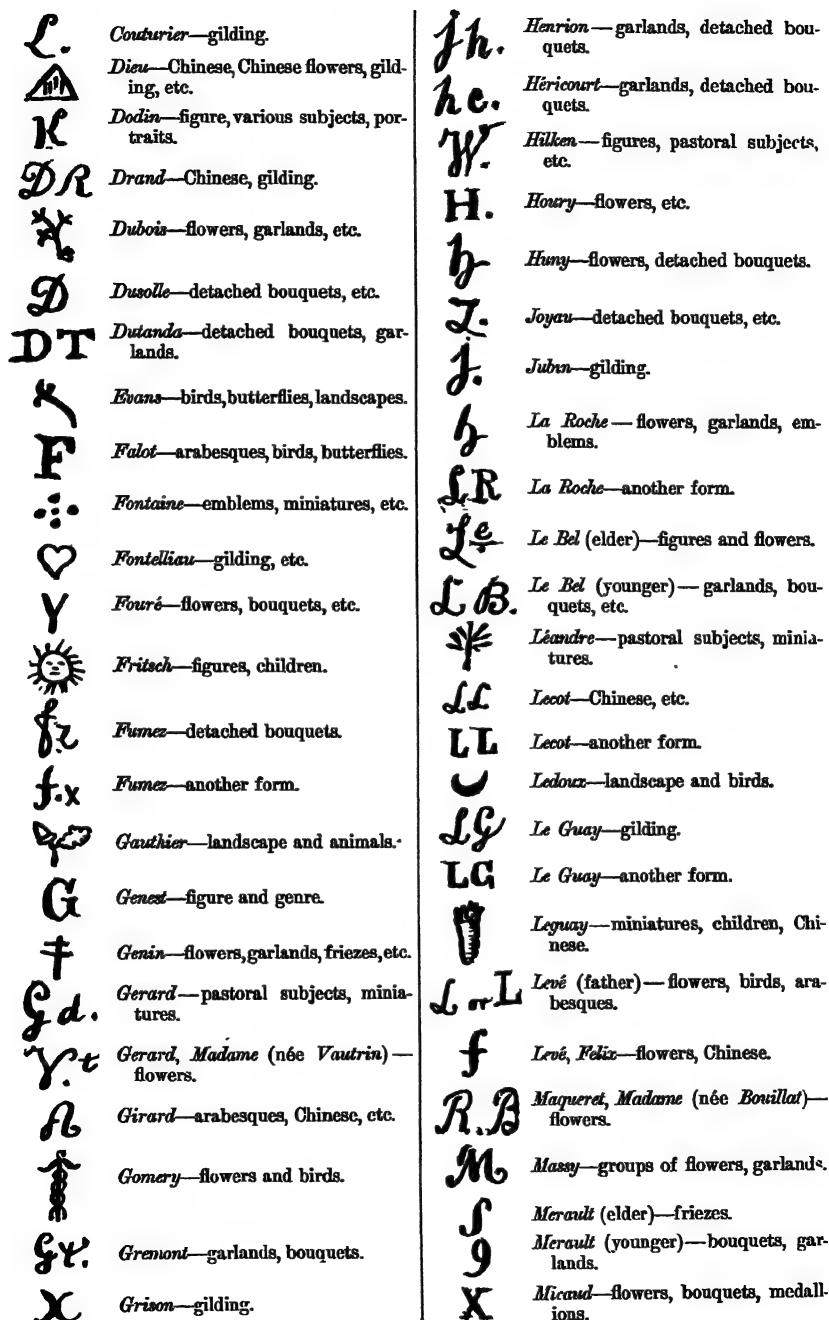 L. Couturier—gilding.
Dieu—Chinese, Chinese flowers, gild-
ing, etc.
K Dodin—figure, various subjects, por-
traits.
DR Drand—Chinese, gilding.
Dubois—flowers, garlands, etc.
D Dusolle—detached bouquets, etc.
DT Dutanda—detached bouquets, gar-
lands.
Evans—birds, butterflies, landscapes.
F Falot—arabesques, birds, butterflies.
Fontaine—emblems, miniatures, etc.
Fontelliau—gilding, etc.
Y Fouré—flowers, bouquets, etc.
Fritsch—figures, children.
fz Fumez—detached bouquets.
f.x Fumez—another form.
Gauthier—landscape and animals.
G Genest—figure and genre.
Genin—flowers, garlands, friezes, etc.
Gd. Gerard—pastoral subjects, minia-
tures.
V.t Gerard, Madame (née Vautrin)—
flowers.
Girard—arabesques, Chinese, etc.
Gomery—flowers and birds.
Gt. Gremont—garlands, bouquets.
X Grison—gilding.
jh. Henrion—garlands, detached bou-
quets.
hc. Héricourt—garlands, detached bou-
quets.
W. Hilken—figures, pastoral subjects,
etc.
H. Houry—flowers, etc.
h Huny—flowers, detached bouquets.
Z. Joyau—detached bouquets, etc.
j. Jubin—gilding.
h La Roche—flowers, garlands, em-
blems.
LR La Roche—another form.
Le Le Bel (elder)—figures and flowers.
LB. Le Bel (younger)—garlands, bou-
quets, etc.
Léandre—pastoral subjects, minia-
tures.
LL Lecot—Chinese, etc.
LL Lecot—another form.
Ledoux—landscape and birds.
LG Le Guay—gilding.
LG Le Guay—another form.
Leguay—miniatures, children, Chi-
nese.
L or L Levé (father)—flowers, birds, ara-
besques.
f Levé, Felix—flowers, Chinese.
R.B Maqueret, Madame (née Bouillat)—
flowers.
M Massy—groups of flowers, garlands.
S Merault (elder)—friezes.
9 Merault (younger)—bouquets, gar-
lands.
X Micaud—flowers, bouquets, medall-
ions.